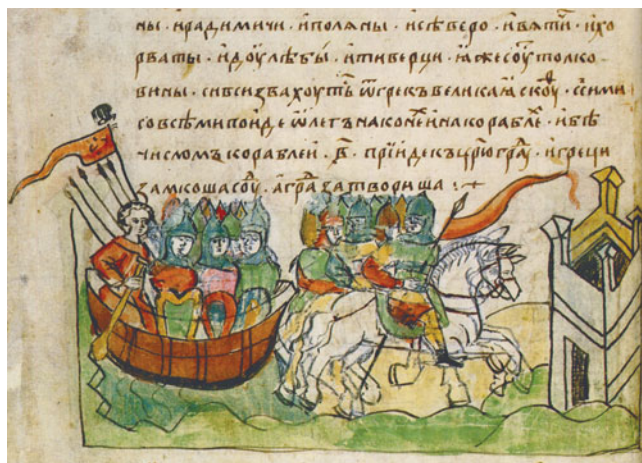 ны · ирадимичи · иполяны · исѣверо · ивѧти · ихо
рваты · идоулѣбы · итиверци · ꙗжесоутолко
вины · сиѿ грекъ великаꙗ
совсѣмипоиде ѿлегънаконеинакораблѣ · ибѣ
числомъкораблеи · в҃ · прїидекъцр҃югра · игреци
замкошасоу · аградзатвориша :·